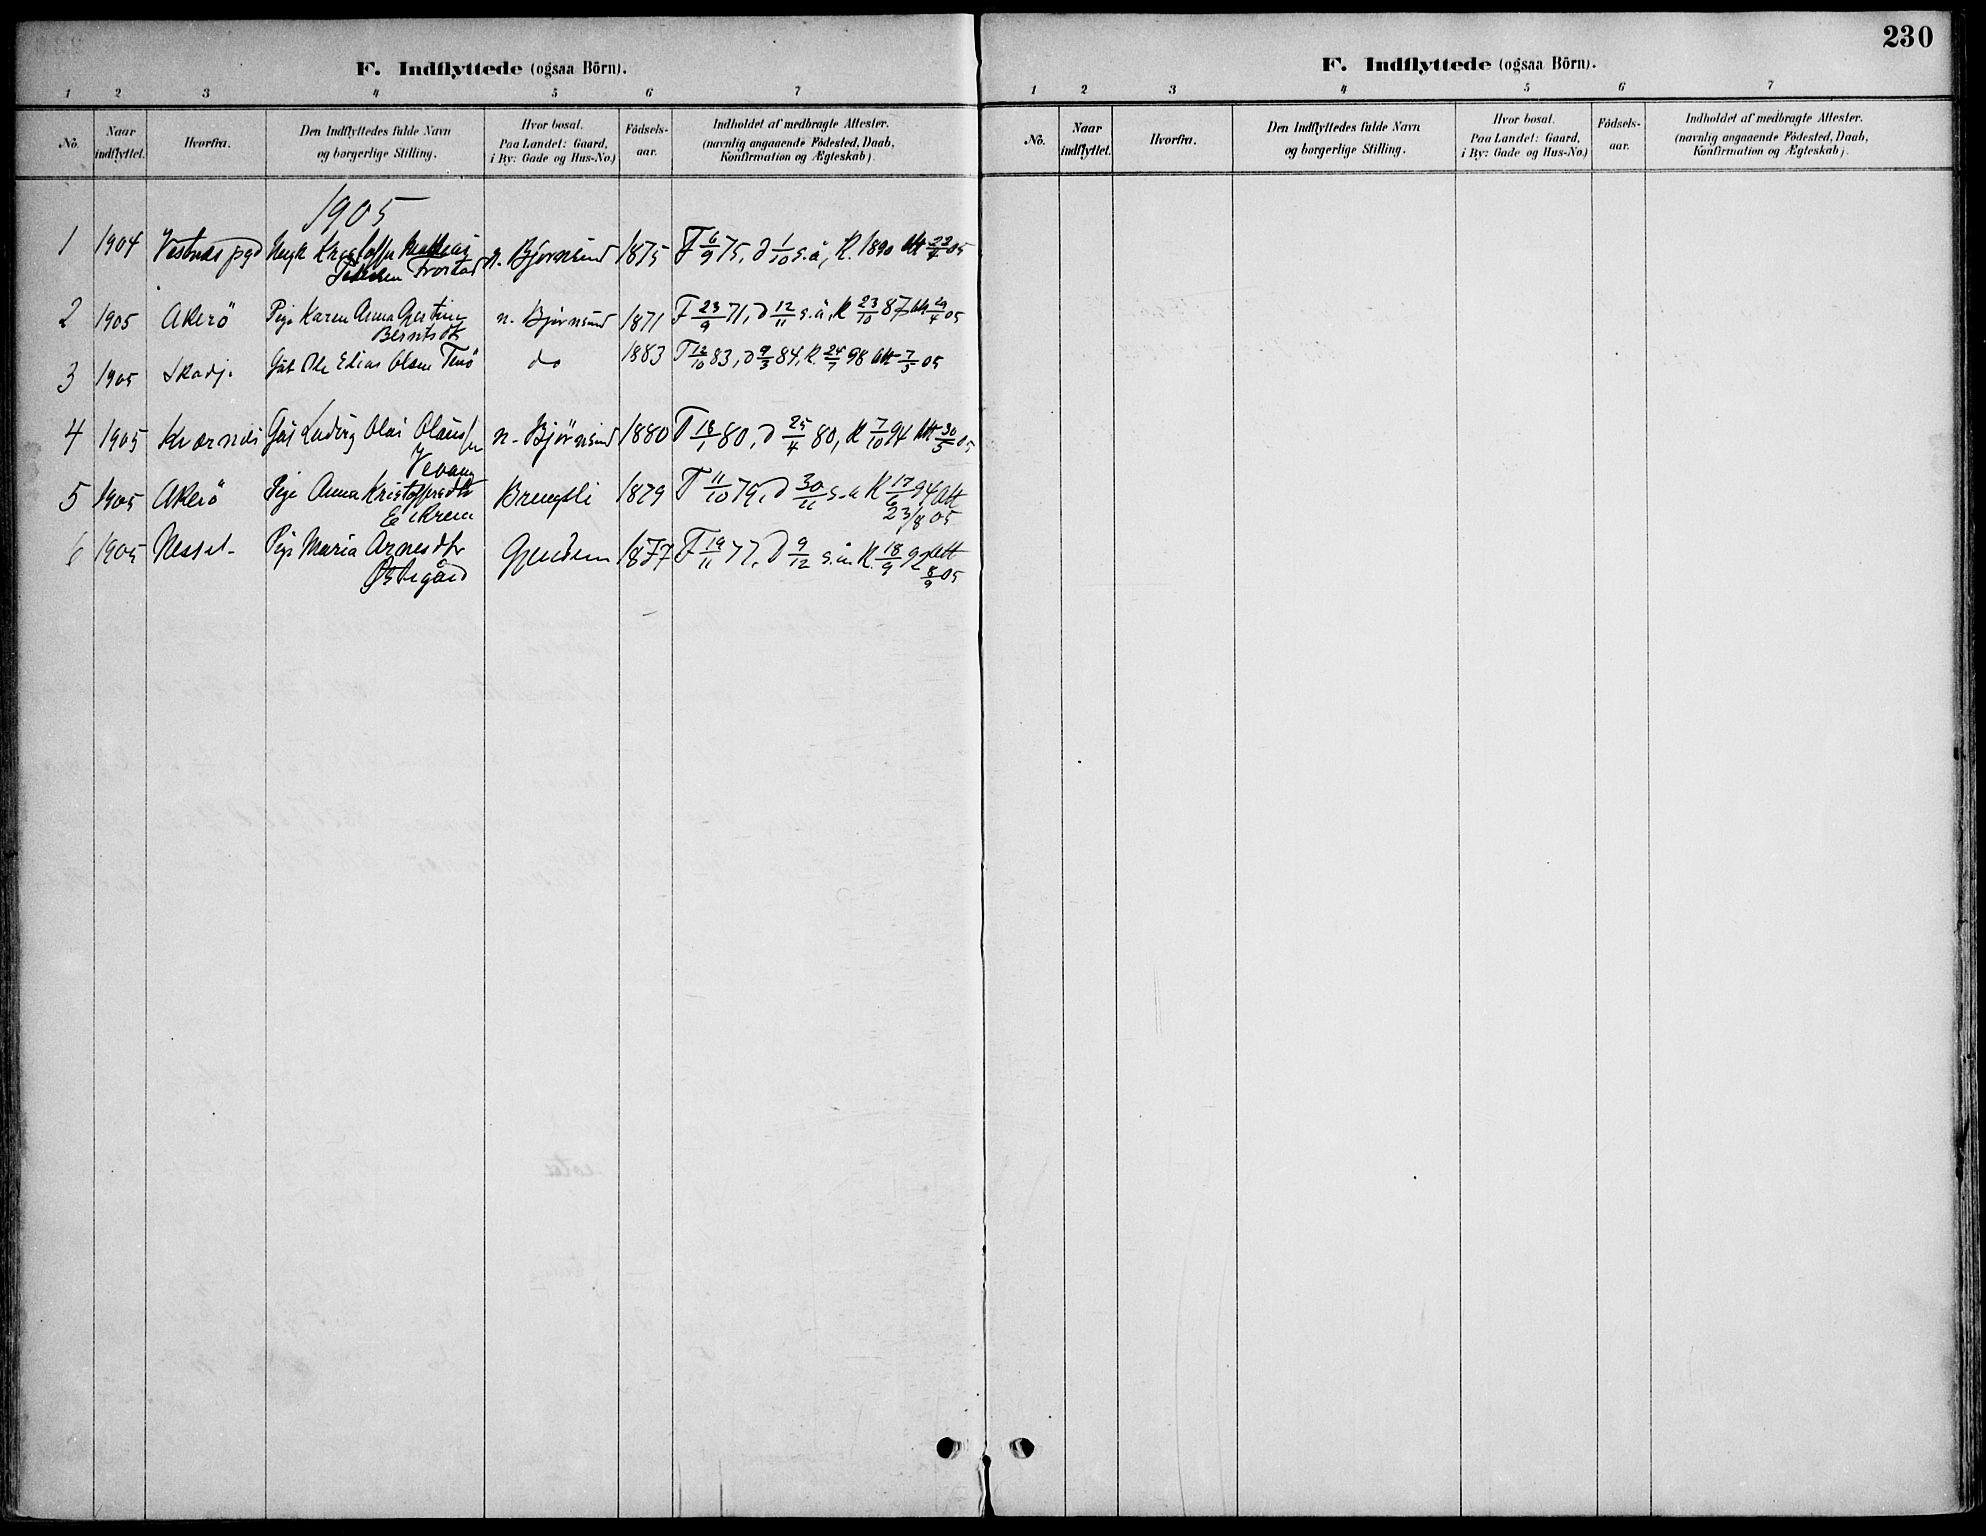 230
F. Indflyttede (ogsaa Börn).
1 2 3 4 5 6 7
No.
Naar indflyttet.
Hvorfra.
Den Indflyttedes fulde Navn og borgerlige Stilling.
Hvor bosat. Paa Landet: Gaard, i By: Gade og Hus-No.)
Födsels-aar.
Indholdet af medbragte Attester. (navnlig angaaende Födested, Daab, Konfirmation og Ægteskab).
1905
1 1904 Vestnes pgd Kristoffer Mathias n. Björnsund 1875 F 6/9 75, D 1/10 s.å, K. 1890 Att 23/4 05
Frostad
2 1905 Akerö Pige Karen Anna Gjertine n. Bjørnsund 1871 F 23/9 71, D 12/11 s.å, K 23/10 87 Att 29/4 05
Berntsdtr
3 1905 Skodj. Gut Ole Elias Olsen Tenö do 1883 F 12/10 83, D 9/3 84, K. 24/7 98 Att 7/5 05
4 1905 Kværnes Gut Ludvig Olai Olaussen n. Bjørnsund 1880 F 18/1 80, D 25/4 80, K 7/10 94 Att 30/5 05
Vevang
5 1905 Akerö Pige Anna Kristoffersdtr Breivikli 1879 F 11/10 79, D 30/11 s.å K 17/6 94 Att
Eikrem 23/8 05
6 1905 Nesset. Pige Maria Arnesdtr Gjendem 1877 F 19/11 77, D 9/12 s.å. K. 18/9 92 Att
Østigård 8/9 05
F. Indflyttede (ogsaa Börn).
1 2 3 4 5 6 7
No.
Naar indflyttet.
Hvorfra.
Den Indflyttedes fulde Navn og borgerlige Stilling.
Hvor bosat. Paa Landet: Gaard, i By: Gade og Hus-No.)
Födsels-aar.
Indholdet af medbragte Attester. (navnlig angaaende Födested, Daab, Konfirmation og Ægteskab).